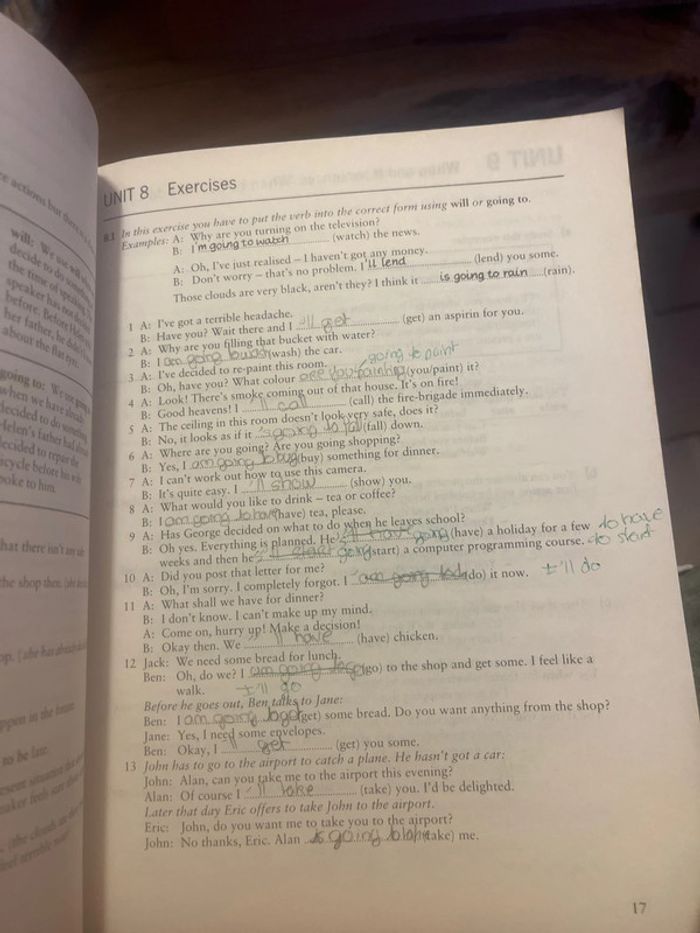 UNIT 8 Exercises
8.1 In this exercise you have to put the verb into the correct form using will or going to.
Examples: A: Why are you turning on the television?
B: I'm going to watch (watch) the news.
A: Oh, I've just realised – I haven't got any money.
B: Don't worry – that's no problem. I'll lend (lend) you some.
Those clouds are very black, aren't they? I think it is going to rain (rain).
1 A: I've got a terrible headache.
B: Have you? Wait there and I 'll get (get) an aspirin for you.
2 A: Why are you filling that bucket with water?
B: I am going to wash (wash) the car.
3 A: I've decided to re-paint this room. going to paint
B: Oh, have you? What colour are you painting (you/paint) it?
4 A: Look! There's smoke coming out of that house. It's on fire!
B: Good heavens! I 'll call (call) the fire-brigade immediately.
5 A: The ceiling in this room doesn't look very safe, does it?
B: No, it looks as if it 's going to fall (fall) down.
6 A: Where are you going? Are you going shopping?
B: Yes, I am going to buy (buy) something for dinner.
7 A: I can't work out how to use this camera.
B: It's quite easy. I 'll show (show) you.
8 A: What would you like to drink – tea or coffee?
B: I am going to have (have) tea, please.
9 A: Has George decided on what to do when he leaves school?
B: Oh yes. Everything is planned. He 'll have going (have) a holiday for a few to have
weeks and then he 'll start going (start) a computer programming course. to start
10 A: Did you post that letter for me?
B: Oh, I'm sorry. I completely forgot. I am going to do (do) it now. I'll do
11 A: What shall we have for dinner?
B: I don't know. I can't make up my mind.
A: Come on, hurry up! Make a decision!
B: Okay then. We 'll have (have) chicken.
12 Jack: We need some bread for lunch.
Ben: Oh, do we? I am going to go (go) to the shop and get some. I feel like a
walk. I'll go
Before he goes out, Ben talks to Jane:
Ben: I am going to get (get) some bread. Do you want anything from the shop?
Jane: Yes, I need some envelopes.
Ben: Okay, I 'll get (get) you some.
13 John has to go to the airport to catch a plane. He hasn't got a car:
John: Alan, can you take me to the airport this evening?
Alan: Of course I 'll take (take) you. I'd be delighted.
Later that day Eric offers to take John to the airport.
Eric: John, do you want me to take you to the airport?
John: No thanks, Eric. Alan is going to (take) me.
17